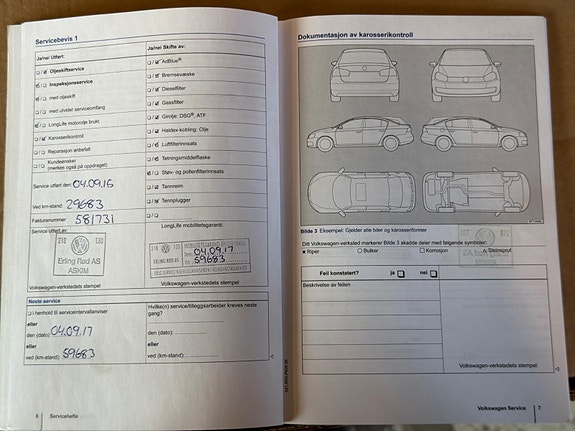 Servicebevis 1
Ja/nei Utført:
Ja/nei Skifte av:
Oljeskiftservice
Inspeksjonsservice
med oljeskift
med utvidet serviceomfang
LongLife motorolje brukt
Karosserikontroll
Reparasjon anbefalt
Kundeønsker
(merkes også på oppdraget)
Service utført den 04.09.15
Ved km-stand: 29683
Fakturanummer: 581731
Service utført av:
218 130
Erling Rød AS
ASKIM
Volkswagen-verkstedets stempel
AdBlue®
Bremsevæske
Dieselfilter
Gassfilter
Girolje: DSG®, ATF
Haldex-kobling: Olje
Luftfilterinnsats
Tetningsmiddelflaske
Støv- og pollenfilterinnsats
Tannreim
Tennplugger
LongLife mobilitetsgaranti:
04.09.17
59683
Volkswagen-verkstedets stempel
Neste service
i henhold til serviceintervallanviser
eller
den (dato) 04.09.17
eller
ved (km-stand): 59683
Hvilke(n) service/tilleggsarbeider kreves neste
gang?
den (dato):
ved (km-stand):
6 Servicehefte
Dokumentasjon av karosserikontroll
Bilde 3 Eksempel: Gjelder alle biler og karosseriformer
Ditt Volkswagen-verksted markerer Bilde 3 skadde deler med følgende symboler:
Riper Bulker Korrosjon Steinsprut
Feil konstatert? ja nei
Beskrivelse av feilen
Volkswagen-verkstedets stempel
Volkswagen Service 7